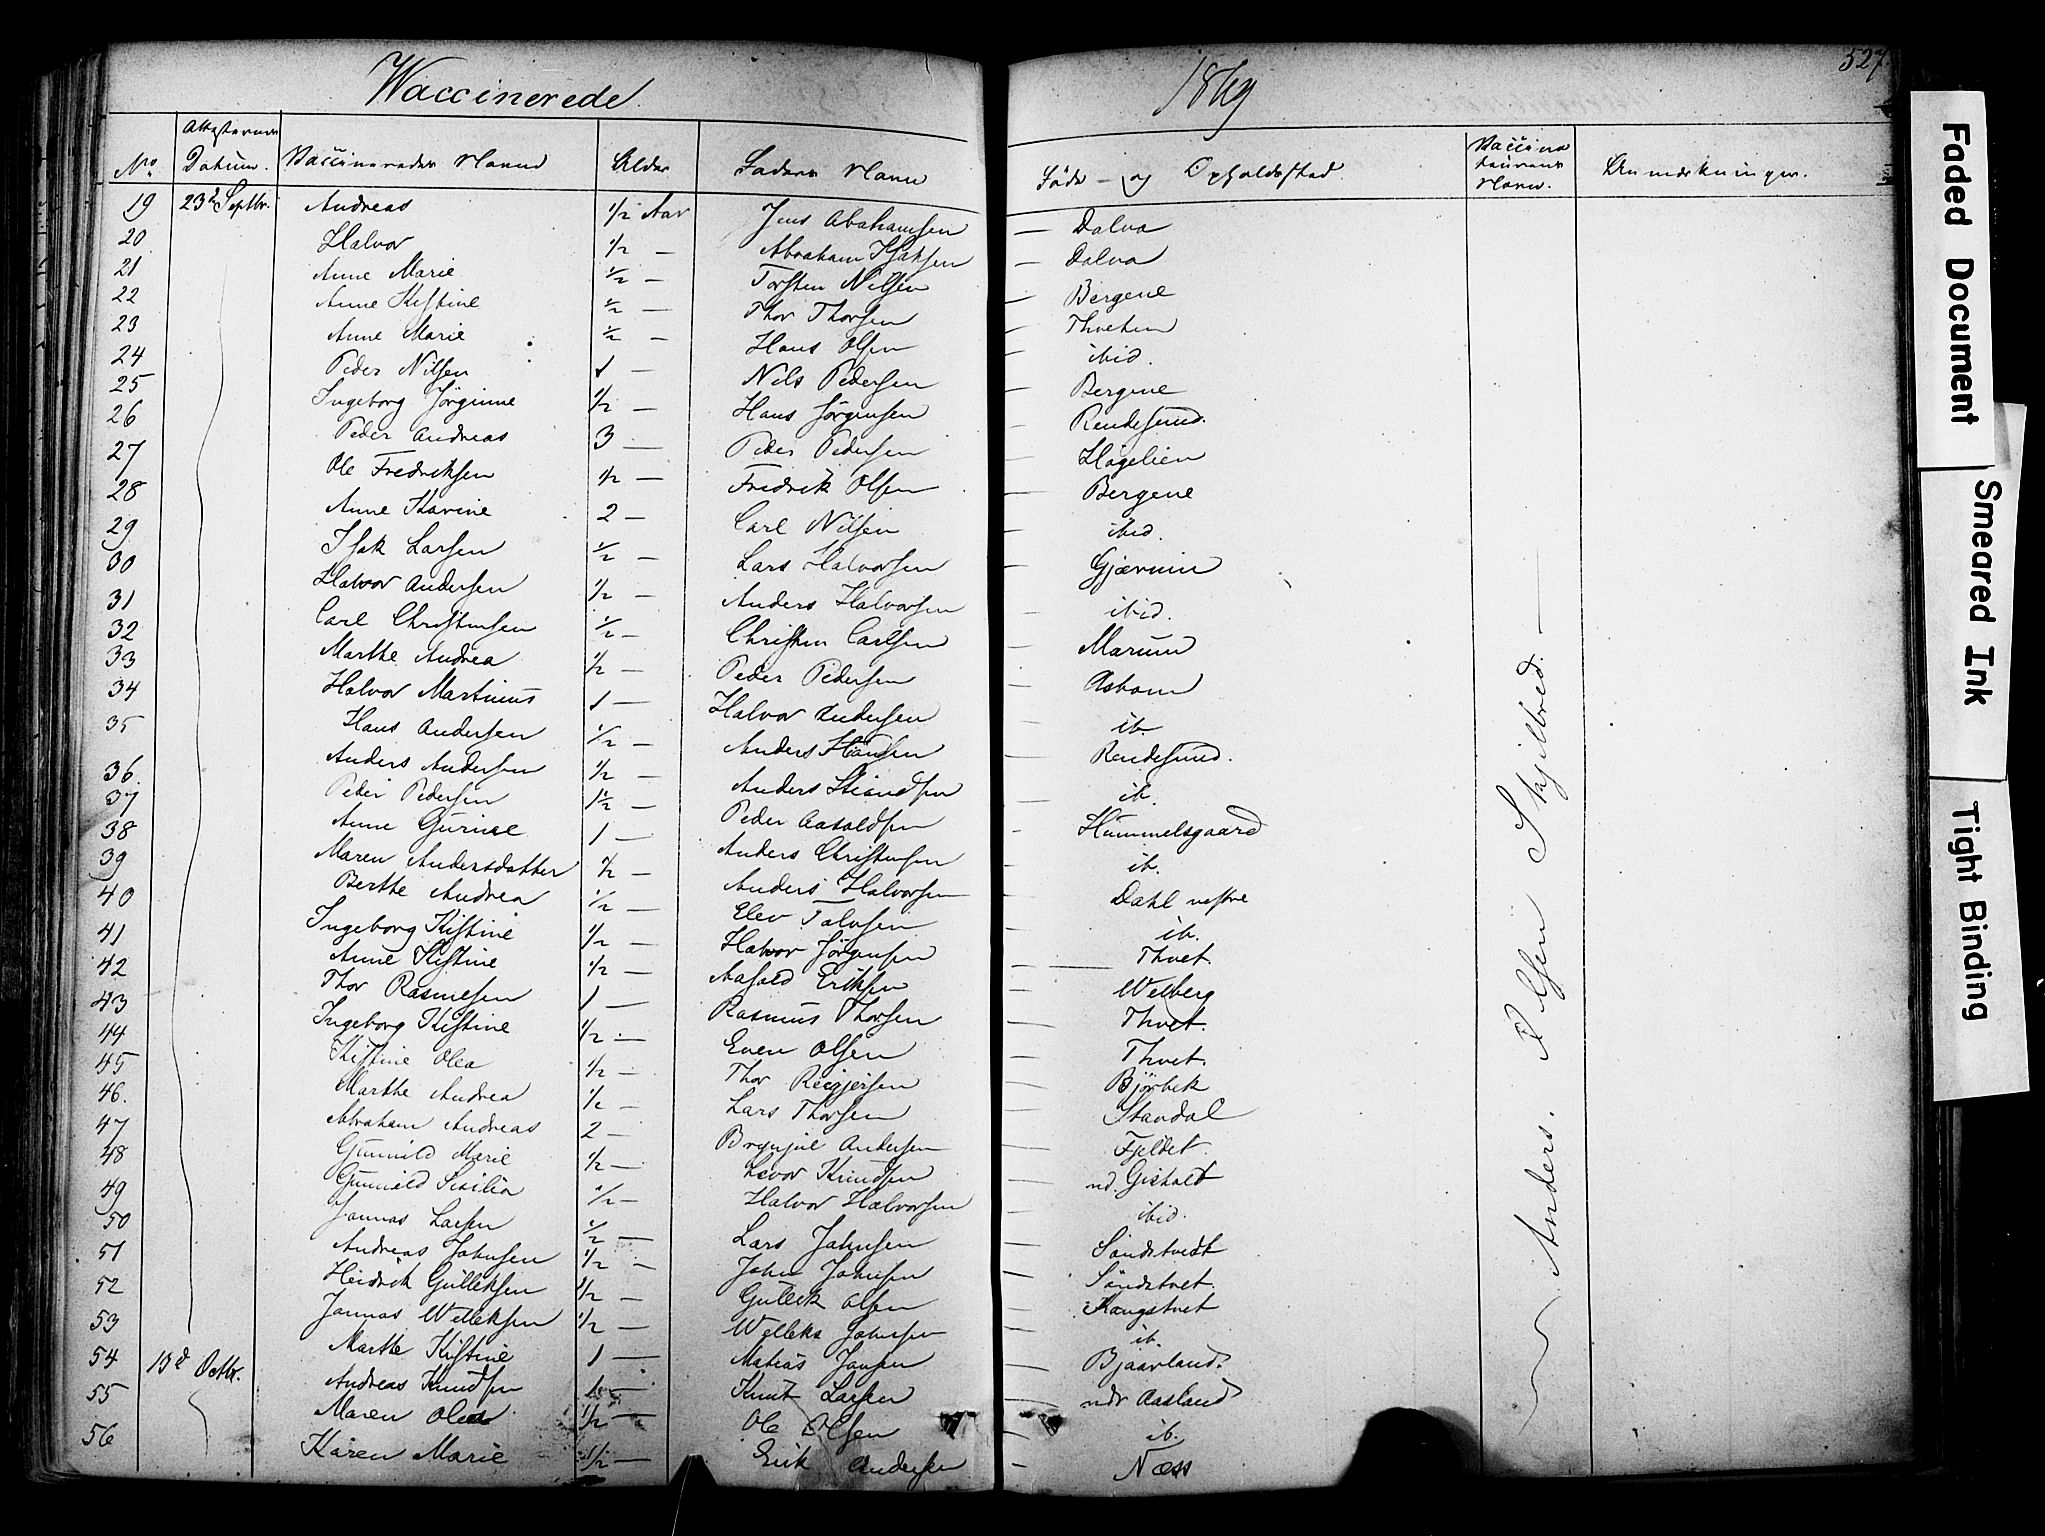 Waccinerede 1869
527
No. Attesternes Datum. Vaccineredes Navne Alder Faders Navn Føde- og Opholdssted Vaccinateurens Navn. Anmærkninger.
19 23d Septbr. Andreas 1/2 Aar Jens Abrahamsen — Dalva
20 Halvor 1/2 — Abraham Isaksen — Dalva
21 Anne Marie 1/2 — Torsten Nilsen — Bergene
22 Anne Kistine 1/2 — Thor Thorsen — Thveten
23 Anne Marie 1/2 — Hans Olsen — ibid.
24 Peder Nilsen 1 — Nils Pedersen — Bergene
25 Ingeborg Jørginne 1/2 — Hans Jørgensen — Rendesund.
26 Peder Andreas 3 — Peder Pedersen — Hagelien
27 Ole Fredriksen 1/2 — Fredrik Olsen — Bergene
28 Anne Karine 2 — Carl Nilsen — ibid.
29 Isak Larsen 1/2 — Lars Halvorsen — Gjærum
30 Halvor Andersen 1/2 — Anders Halvorsen — ibid.
31 Carl Christensen 1/2 — Christen Carlsen — Marum
32 Marthe Andrea 1/2 — Peder Pedersen — Asbom
33 Halvor Martinus 1 — Halvor Andersen — ib.
34 Hans Andersen 1/2 — Anders Hansen — Rendesund.
35 Anders Andersen 1/2 — Anders — ib.
36. Peder Pedersen 1 1/2 — Peder Aasoldsen — Hummelsgaard
37 Anne Gurine 1 — Anders Christensen — ib.
38 Maren Andersdatter 1/2 — Anders Halvorsen — Dahl vestre
39 Berthe Andrea 1/2 — Elev Talvsen — ib.
40 Ingeborg Kistine 1/2 — Halvor Jørgensen — Thvet.
41 Anne Kistine 1/2 — Aasold Eriksen — Welberg
42 Thor Rasmusen 1 — Rasmus Thorsen — Thvet.
43 Ingeborg Kistine 1/2 — Even Olsen — Thvet.
44 Kistine Olea 1/2 — Thor Reigjersen — Bjørbek
45 Marthe Andrea 1/2 — Lars Thorsen — Standal
46. Abraham Andreas 2 — Brynjul Andersen — Fjeldet.
47 Gunnild Marie 1/2 — Levor Knudsen — nd. Gisholt
48 Gunnild Sisilia 1/2 — Halvor Halvorsen — ibid.
49 Jannas Larsen 1/2 — Lars Johnsen — Søndstvedt
50 Andreas Johnsen 1/2 — John Johnsen — Søndstvet.
51 Heidrik Gulleksen 1/2 — Gullek Olsen — Haugstvet
52 Jannas Welleksen 1/2 — Welleks Johnsen — ib.
53 Marthe Kistine 1 — Matias Jansen — Bjaarland.
54 13d Octbr. Andreas Knudsen 1 — Knut Larsen — ndr Aasland
55 Maren Olea 1/2 — Ole Olsen — ib.
56 Karen Marie 1/2 — Erik Andersen — Næss
Anders. Olsen Skjelbred.
Faded Document
Smeared Ink
Tight Binding